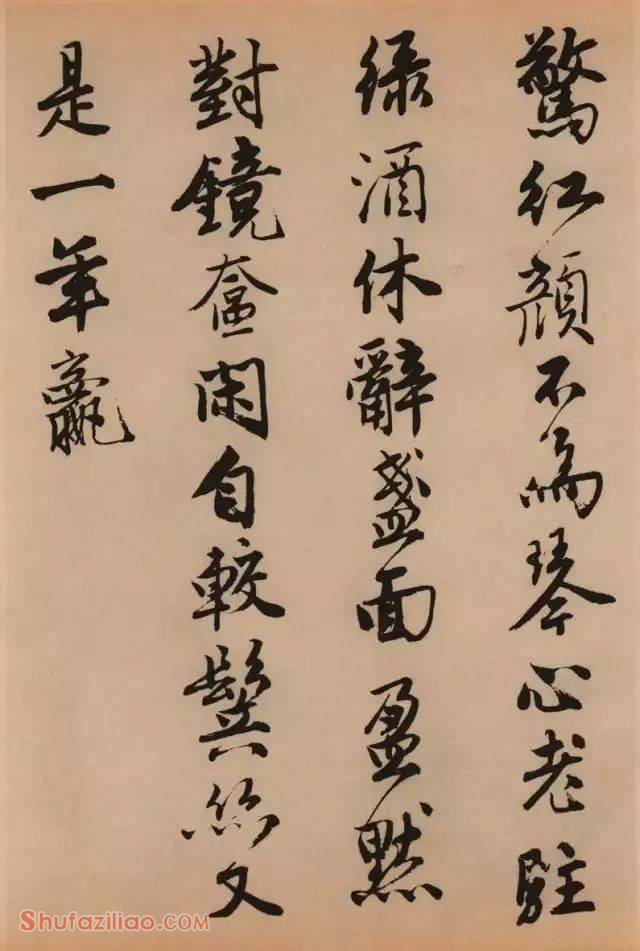 驚紅顏不為琴心老駐
綠酒休辭盞面盈默
對鏡奩閑自較鬢絲又
是一年贏
Shufaziliao.com